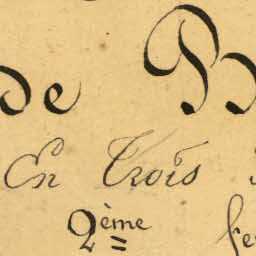 de
En Trois
2ème